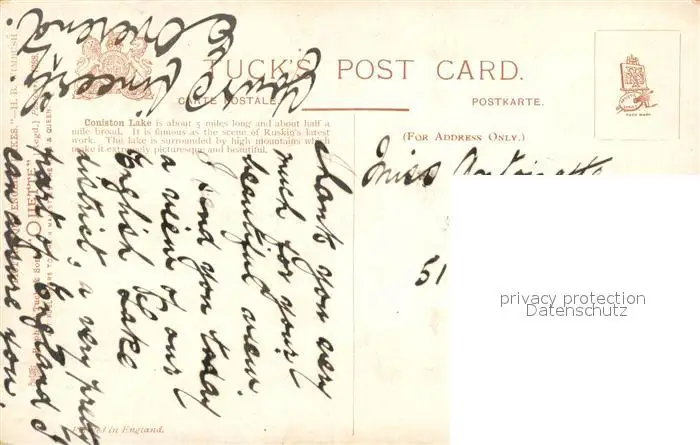 TUCK'S POST CARD.
CARTE POSTALE.
POSTKARTE.
Coniston Lake is about 5 miles long and about half a
mile broad. It is famous as the scene of Ruskin's latest
work. The lake is surrounded by high mountains which
make it extremely picturesque and beautiful.
(FOR ADDRESS ONLY.)
TRADE MARK
Miss
51
Thank you very
much for your
beautiful view.
I send you today
a view of our
English Lake
district, a very pretty
part of England I
can assure you.
Yours sincerely
"OILETTE"
in England.
privacy protection
Datenschutz